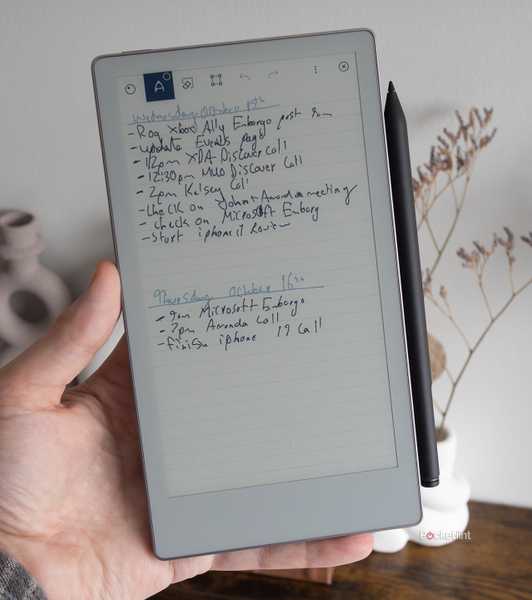 A
Wednesday October 15th
- Rog Xbox Ally Embargo post 9am
- update Events page
- 12pm XDA Discover call
- 12:30pm MUO Discover Call
- 2pm Kelsey Call
- Check on John + Amanda meeting
- check on Microsoft Embarg
- Start iphone 17 Review
Thursday October 16th
- 9am Microsoft Embargo
- 2pm Amanda Call
- Finish iphone 17 Call
Pocketlint